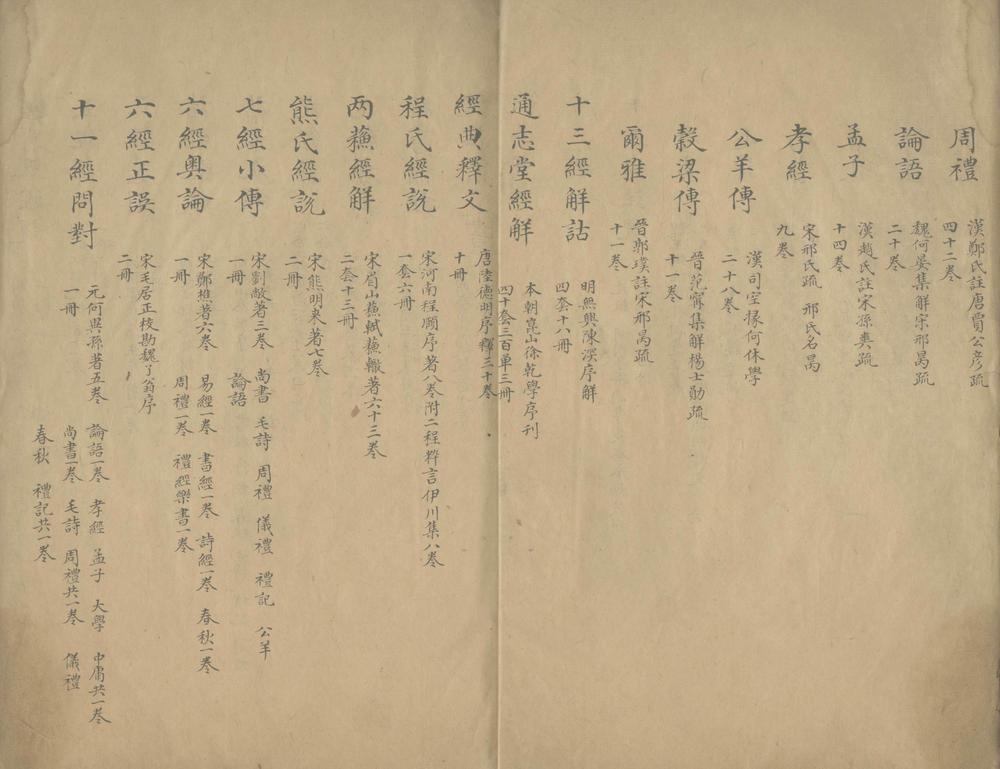 周禮
漢鄭氏註唐賈公彥疏
四十二卷
論語
魏何晏集解宋邢昺疏
二十卷
孟子
漢趙氏註宋孫奭疏
十四卷
孝經
宋邢氏疏 邢氏名昺
九卷
公羊傳
漢司空掾何休學
二十八卷
穀梁傳
晉范甯集解楊士勛疏
十一卷
爾雅
晉郭璞註宋邢昺疏
十一卷
十三經解詁
明無與陳深序解
四套十八冊
通志堂經解
本朝崑山徐乾學序刊
四十套三百单三冊
經典釋文
唐陸德明序釋三十卷
十冊
程氏經說
宋河南程頤序著八卷附二程粹言伊川集八卷
一套六冊
兩蘓經解
宋眉山蘓軾蘓轍著六十三卷
二套十三冊
熊氏經說
宋熊明來著七卷
二冊
七經小傳
宋劉敞著三卷 尚書 毛詩 周禮 儀禮 禮記 公羊
一冊 論語
六經奥論
宋鄭樵著六卷 易經一卷 書經一卷 詩經一卷 春秋一卷
一冊 周禮一卷 禮經樂書一卷
六經正誤
宋毛居正校勘魏了翁序
二冊
十一經問對
元何異孫著五卷 論語一卷 孝經 孟子 大學 中庸共一卷
一冊 尚書一卷 毛詩 周禮共一卷 儀禮
春秋 禮記共一卷